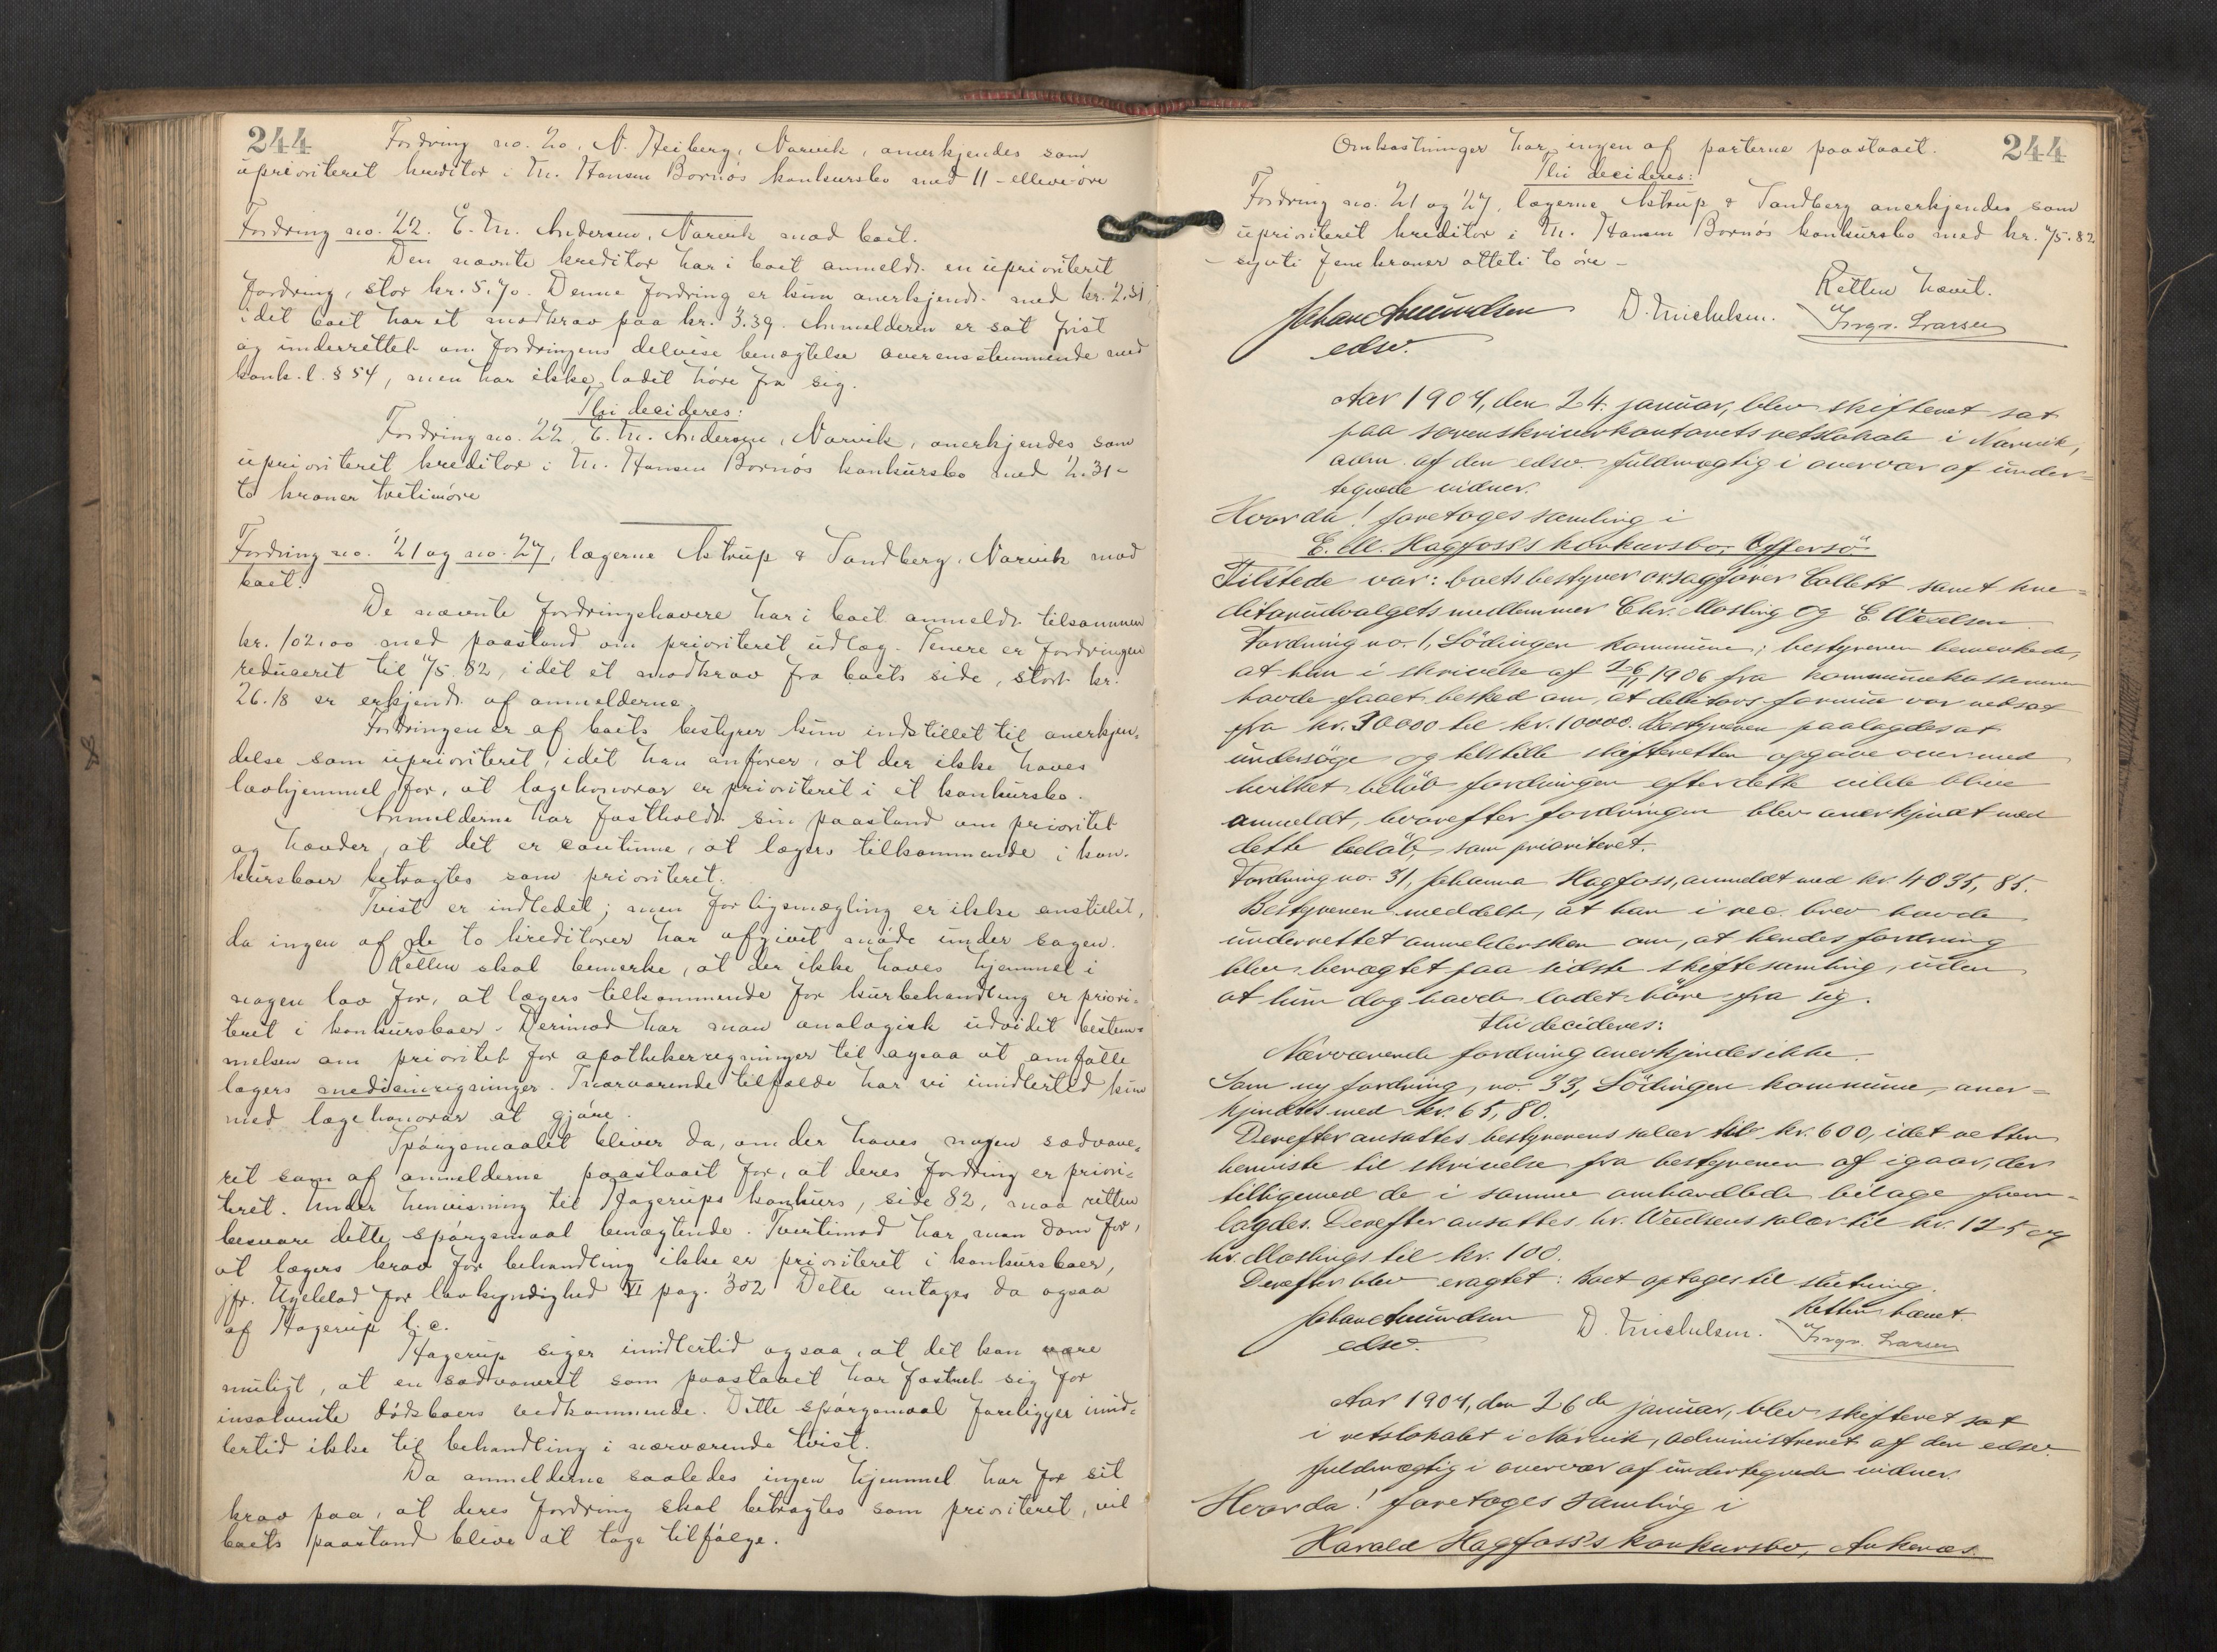 244
Fordring no. 20, N. Heiberg, Narvik, anerkjendes som
uprioritert kreditor i M. Hansen Bornös konkursbo med 11 - elleve øre
Fordring no. 22. E. M. Andersen, Narvik mod boet.
Den nævnte kreditor har i boet anmeldt en uprioriteret
fordring, stor kr. 5.70. Denne fordring er kun anerkjendt med kr. 2.31,
idet boet har et modkrav paa kr. 3.39. Anmelderen er sat frist
og underrettet om fordringens delvise benægtelse overensstemmende med
konk. l. § 54, men har ikke ladet höre fra sig.
Thi decideres:
Fordring no. 22, E. M. Andersen, Narvik, anerkjendes som
uprioriteret kreditor i M. Hansen Bornös konkursbo med 2.31 -
to kroner trettienöre
Fordring no. 21 og no. 27, lægerne Astrup & Sandberg, Narvik mod
boet.
De nævnte fordringshavere har i boet anmeldt tilsammen
kr. 102.00 med paastand om prioriteret udlæg. Senere er fordringen
reduceret til 75.82, idet et modkrav fra boets side, stort kr.
26.18 er erkjendt af anmelderne.
Fordringen er af boets bestyrer kun indstillet til anerkjen-
delse som uprioriteret, idet han anförer, at der ikke haves
lovhjemmel for, at lægehonorar er prioriteret i et konkursbo.
Anmelderne har fastholdt sin paastand om prioritet
og hævder, at det er coutume, at lægers tilkommende i kon-
kursboer betragtes som prioriteret.
Tvist er indledet; men forligsmægling er ikke anstillet,
da ingen af de to kreditorer har afgivet möde under sagen.
Retten skal bemerke, at der ikke haves hjemmel i
nogen lov for, at lægers tilkommende for kurbehandling er priori-
teret i konkursboer. Derimod har man analogisk udvidet bestem-
melsen om prioritet for apothekerregninger til ogsaa at omfatte
lægers medicinregninger. I nærværende tilfælde har vi imidlertid kun
med lægehonorar at gjöre.
Spörgsmaalet bliver da, om der haves nogen sædvane-
ret som af anmelderne paastaaet for, at deres fordring er priori-
teret. Under henvisning til Hagerups konkurs, side 82, maa retten
besvare dette spörgsmaal benægtende. Tvertimod har man dom for,
at lægers krav for behandling ikke er prioriteret i konkursboer,
jfr. Ugeblad for lovkyndighed VI pag. 302. Dette antages da ogsaa
af Hagerup l. c.
Hagerup siger imidlertid ogsaa, at det kan være
muligt, at en sædvaneret som paastaaet har fæstnet sig for
insolvente dödsboers vedkommende. Dette spörgsmaal foreligger imid-
lertid ikke til behandling i nærværende tvist.
Da anmelderne saaledes ingen hjemmel har for sit
krav paa, at deres fordring skal betragtes som prioriteret, vil
boets paastand blive at tage tilfölge.
244
Omkostninger har ingen af parterne paastaaet.
Thi decideres:
Fordring no. 21 og 27, lægerne Astrup & Sandberg anerkjendes som
uprioriteret kreditor i M. Hansen Bornös konkursbo med kr. 75.82
- sytti fem kroner otteti to öre -
Retten hævet.
Johan Amundsen D. Michelsen. Ingv. Larsen
edsv.
Aar 1907, den 24. januar, blev skifteret sat
paa sorenskriverkontorets retslokale i Narvik,
adm. af den edsv. fuldmægtig i overvær af under-
tegnede vidner.
Hvorda! foretoges samling i
E. M. Hagfoss's konkursbo, Offersö
Tilstede var: boets bestyrer orsagförer Collett samt kre-
ditorudvalgets medlemmer Chr. Mosling og E Wexelsen.
Fordring no. 1, Lödingen kommune; bestyreren bemerkede,
at han i skrivelse af 26/11 1906 fra kommunekassereren
havde faaet besked om, at debitors formue var nedsat
fra kr. 30000 til kr. 10000. Bestyreren paalagdes at
undersöge og tilstille skifteretten opgave over med
hvilket belöb fordringen efter dette vilde blive
anmeldt, hvorefter fordringen blev anerkjendt med
dette belöb, som prioriteret.
Fordring no. 31, Johanna Hagfoss, anmeldt med kr. 4035,85.
Bestyreren meddelte, at han i rec. brev havde
underrettet anmeldersken om, at hendes fordring
blev benægtet paa sidste skiftesamling, uden
at hun dog havde ladet höre fra sig.
Thi decideres:
Nærværende fordring anerkjendes ikke.
Som ny fordring, no. 33, Lödingen kommune, aner-
kjendtes med kr. 65,80.
Derefter ansattes bestyrerens salær til kr. 600, idet retten
henviste til skrivelse fra bestyreren af igaar, der
tilligemed de i samme omhandlede bilage frem-
lagdes. Derefter ansattes hr. Wexelsens salær til kr. 125 og
hr. Moslings til kr. 100.
Derefter blev eragtet: Boet optages til slutning.
Retten hævet.
Johan Amundsen D. Michelsen. Ingv. Larsen
edsv.
Aar 1907, den 26de januar, blev skifteret sat
i retslokalet i Narvik, administreret af den edsv.
fuldmægtig i overvær af undertegnede vidner.
Hvorda! foretoges samling i
Harald Hagfoss's konkursbo, Ankenes.